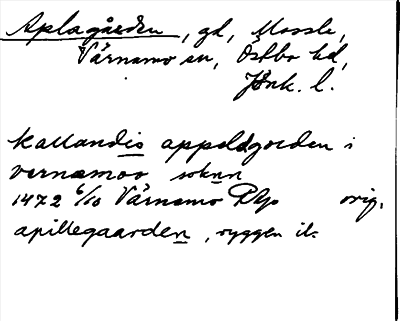 Aplagården, gd, Mossle,
Värnamo sn, Östbo hd,
Jönk. l.
kallandis appeldgorden i
vernamoo soknn
1472 6/10 Värnamo RAp orig.
apillegaarden, ryggen il.